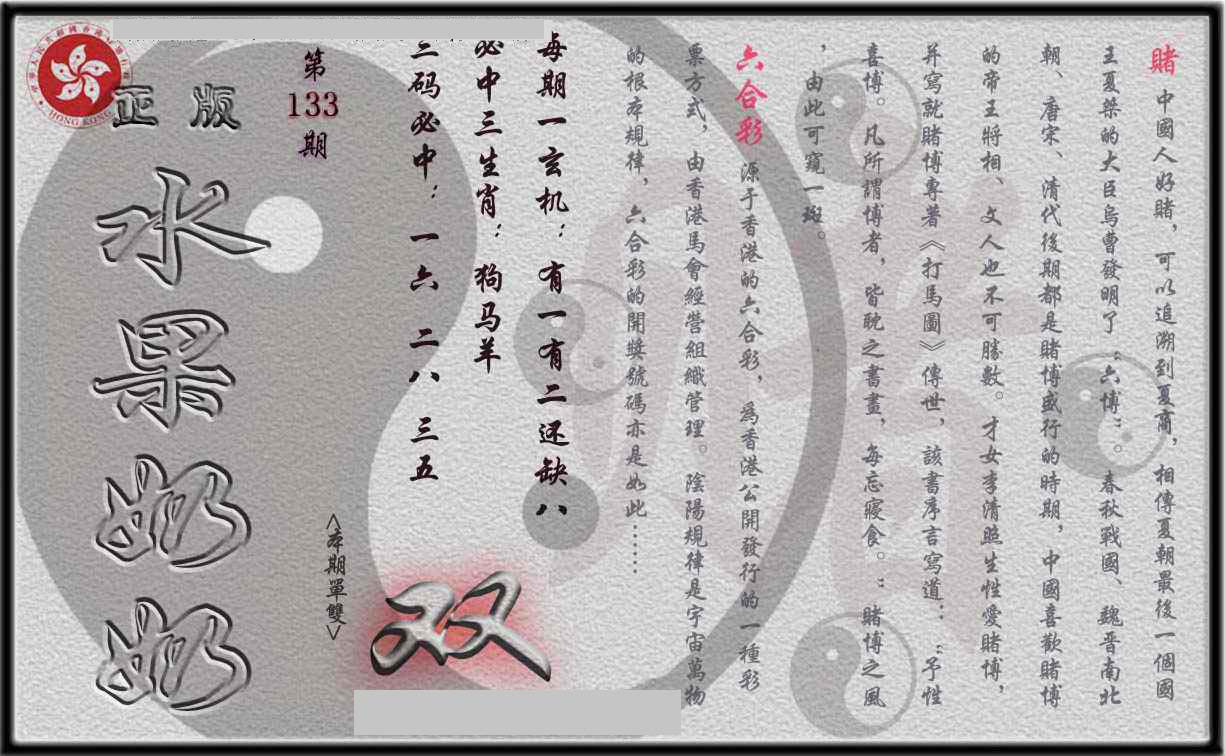 賭 中國人好賭，可以追溯到夏商，相傳夏朝最後一個國
王夏桀的大臣烏曹發明了“六博”。春秋戰國、魏晋南北
朝、唐宋、清代後期都是賭博盛行的時期，中國喜歡賭博
的帝王將相、文人也不可勝數。才女李清照生性愛賭博，
并寫就賭博專著《打馬圖》傳世，該書序言寫道：“予性
喜博。凡所謂博者，皆耽之書畫，每忘寢食。”賭博之風
，由此可窺一斑。
六合彩 源于香港的六合彩，為香港公開發行的一種彩
票方式，由香港馬會經營組織管理。陰陽規律是宇宙萬物
的根本規律，六合彩的開獎號碼亦是如此……
每期一玄机：有一有二还缺八
必中三生肖：狗马羊
三码必中：一六 二八 三五
双
<本期單雙>
第
133
期
正版
水果奶奶
HONG KONG